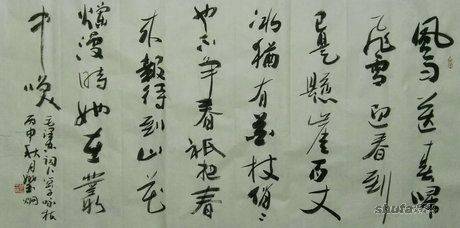 風雨送春歸
飛雪迎春到
已是懸崖百丈
冰猶有花枝俏〻
也不爭春祇把春
来報待到山花
爛漫時她在叢
中咲
毛澤東詞卜算子咏梅
丙申秋月